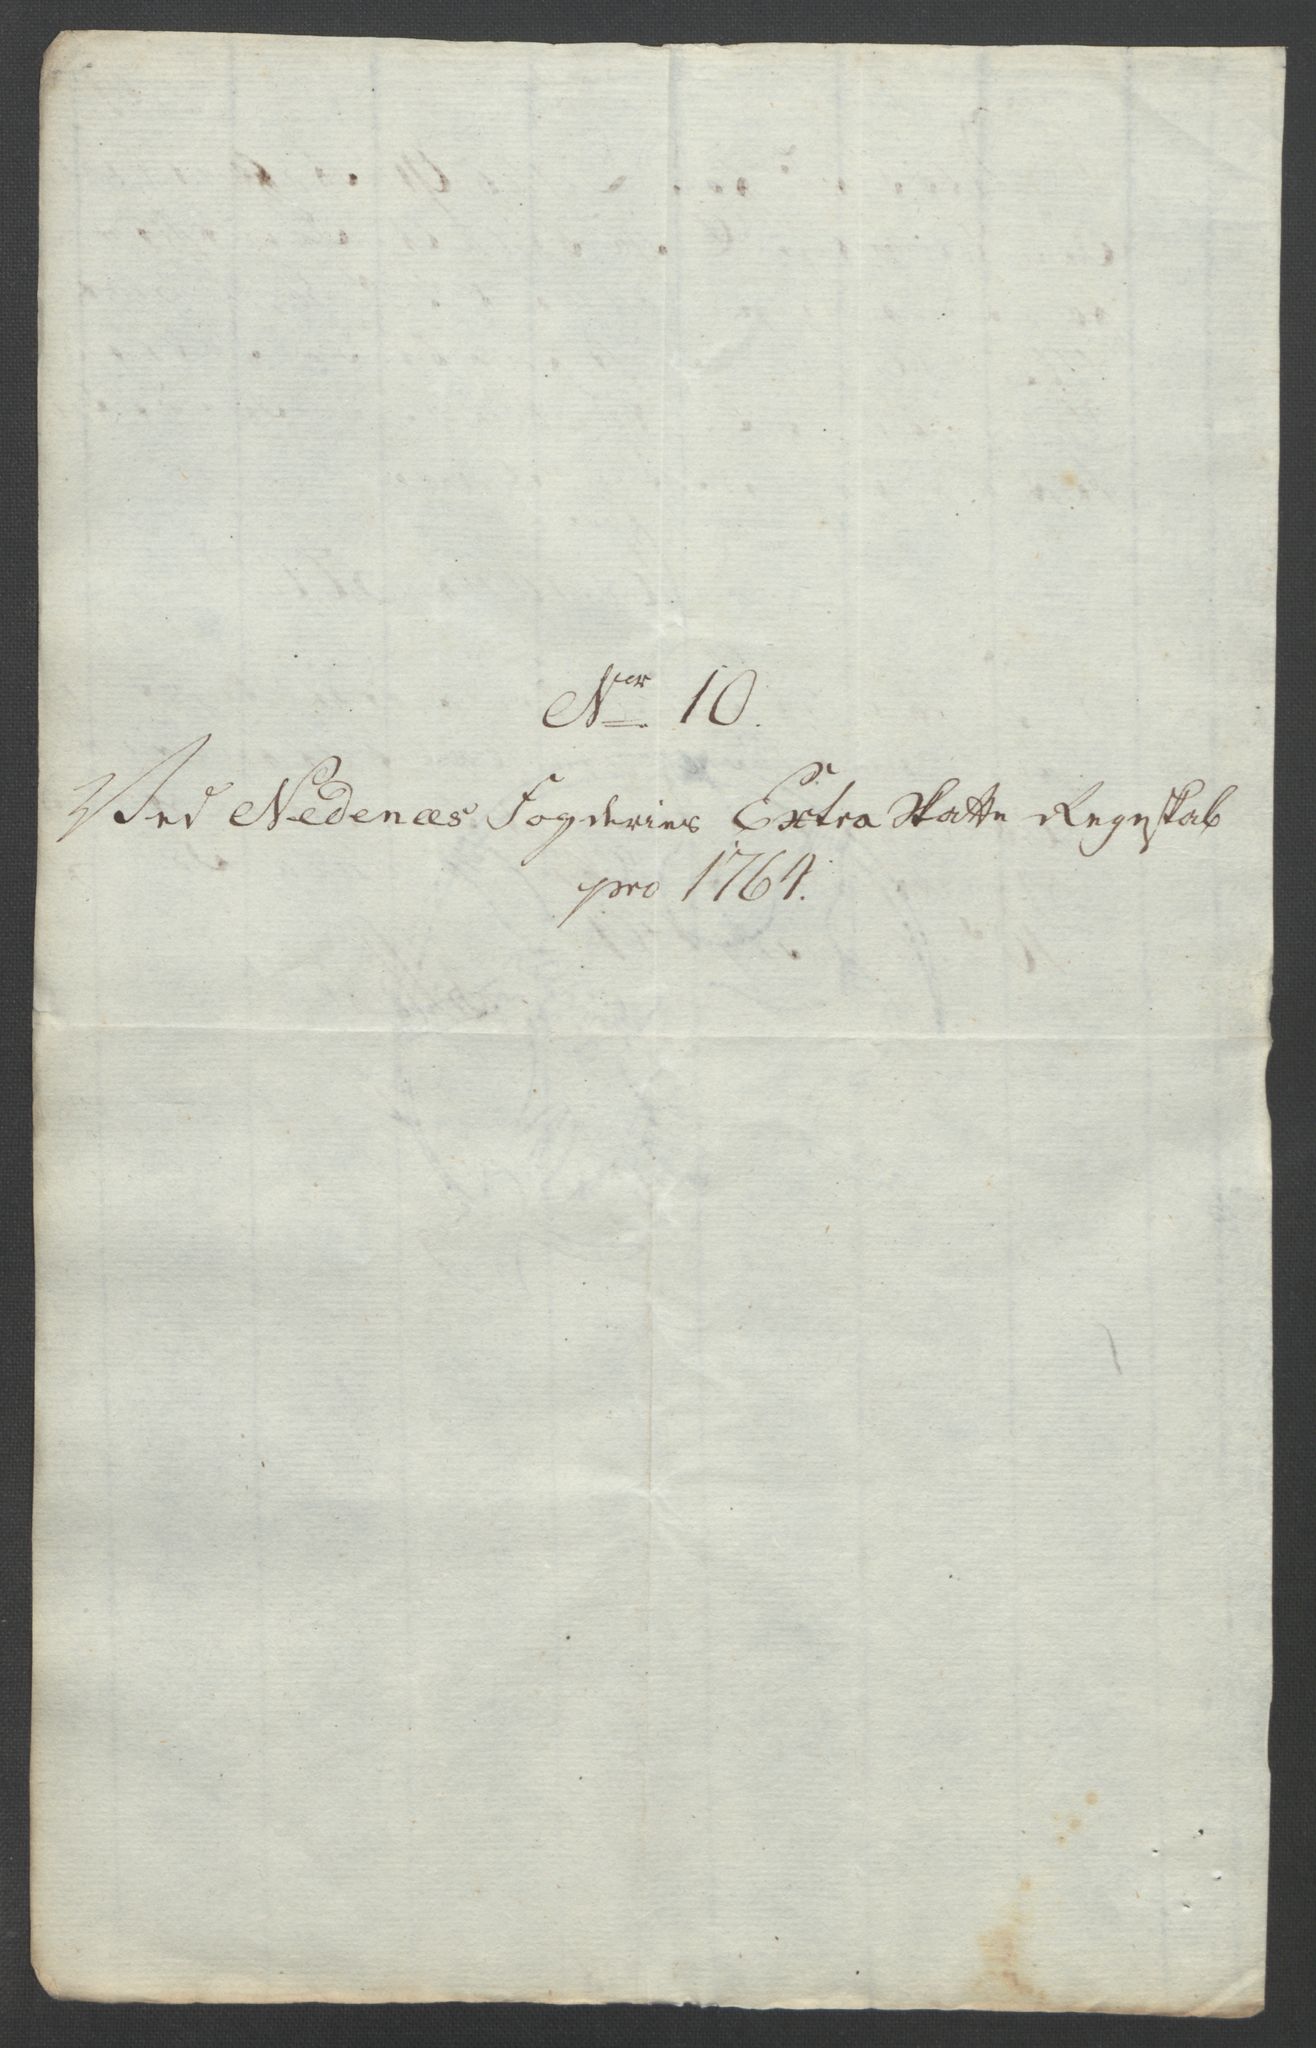 Ner 10.
Ved Nedenæs Fogderies Extra Skatte Regnskab
pro 1764.